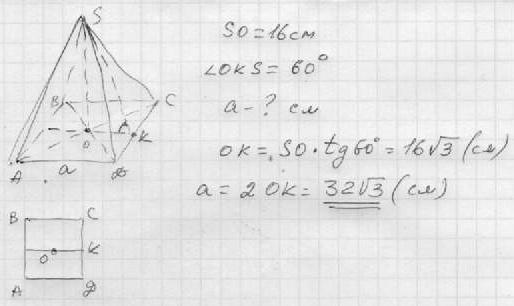 S
B
C
O
K
A
a
D
SO = 16 см
∠OKS = 60°
a - ? см
OK = SO · tg 60° = 16√3 (см)
a = 2 OK = 32√3 (см)
B C
O K
A D